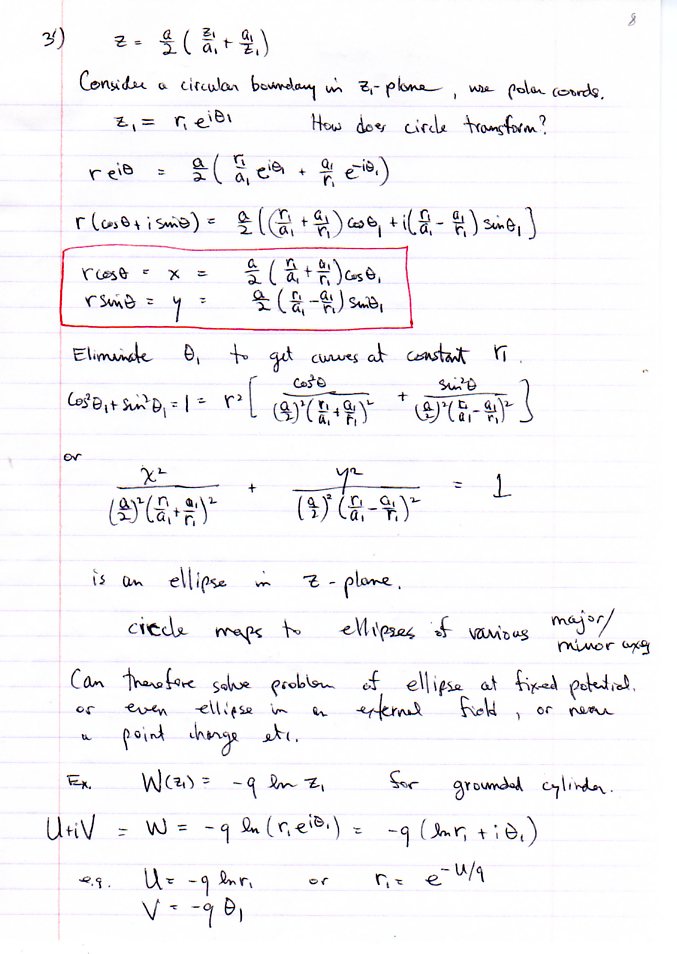 8
3') z = a/2 ( z₁/a₁ + a₁/z₁ )
Consider a circular boundary in z₁-plane, use polar coords.
z₁ = r₁ e^{iθ₁} How does circle transform?
r e^{iθ} = a/2 ( r₁/a₁ e^{iθ₁} + a₁/r₁ e^{-iθ₁} )
r (cosθ + i sinθ) = a/2 [ ( r₁/a₁ + a₁/r₁ ) cosθ₁ + i ( r₁/a₁ - a₁/r₁ ) sinθ₁ ]
r cosθ = x = a/2 ( r₁/a₁ + a₁/r₁ ) cosθ₁
r sinθ = y = a/2 ( r₁/a₁ - a₁/r₁ ) sinθ₁
Eliminate θ₁ to get curves at constant r₁.
cos²θ₁ + sin²θ₁ = 1 = r² [ cos²θ / (a/2)² ( r₁/a₁ + a₁/r₁ )² + sin²θ / (a/2)² ( r₁/a₁ - a₁/r₁ )² ]
or
x² / (a/2)² ( r₁/a₁ + a₁/r₁ )² + y² / (a/2)² ( r₁/a₁ - a₁/r₁ )² = 1
is an ellipse in z-plane.
circle maps to ellipses of various major/
minor axes
Can therefore solve problem of ellipse at fixed potential.
or even ellipse in an external field, or near
a point charge etc.
Ex. W(z₁) = -q ln z₁ for grounded cylinder.
U+iV = W = -q ln (r₁ e^{iθ₁}) = -q (ln r₁ + i θ₁)
e.g. U = -q ln r₁ or r₁ = e^{-U/q}
V = -q θ₁